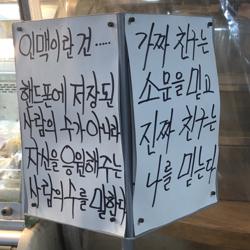 인맥이란 건 .....
핸드폰에 저장된
사람의 수가 아니라
자신을 응원해주는
사람의 수를 말한다
가짜 친구는
소문을 믿고
진짜 친구는
나를 믿는다